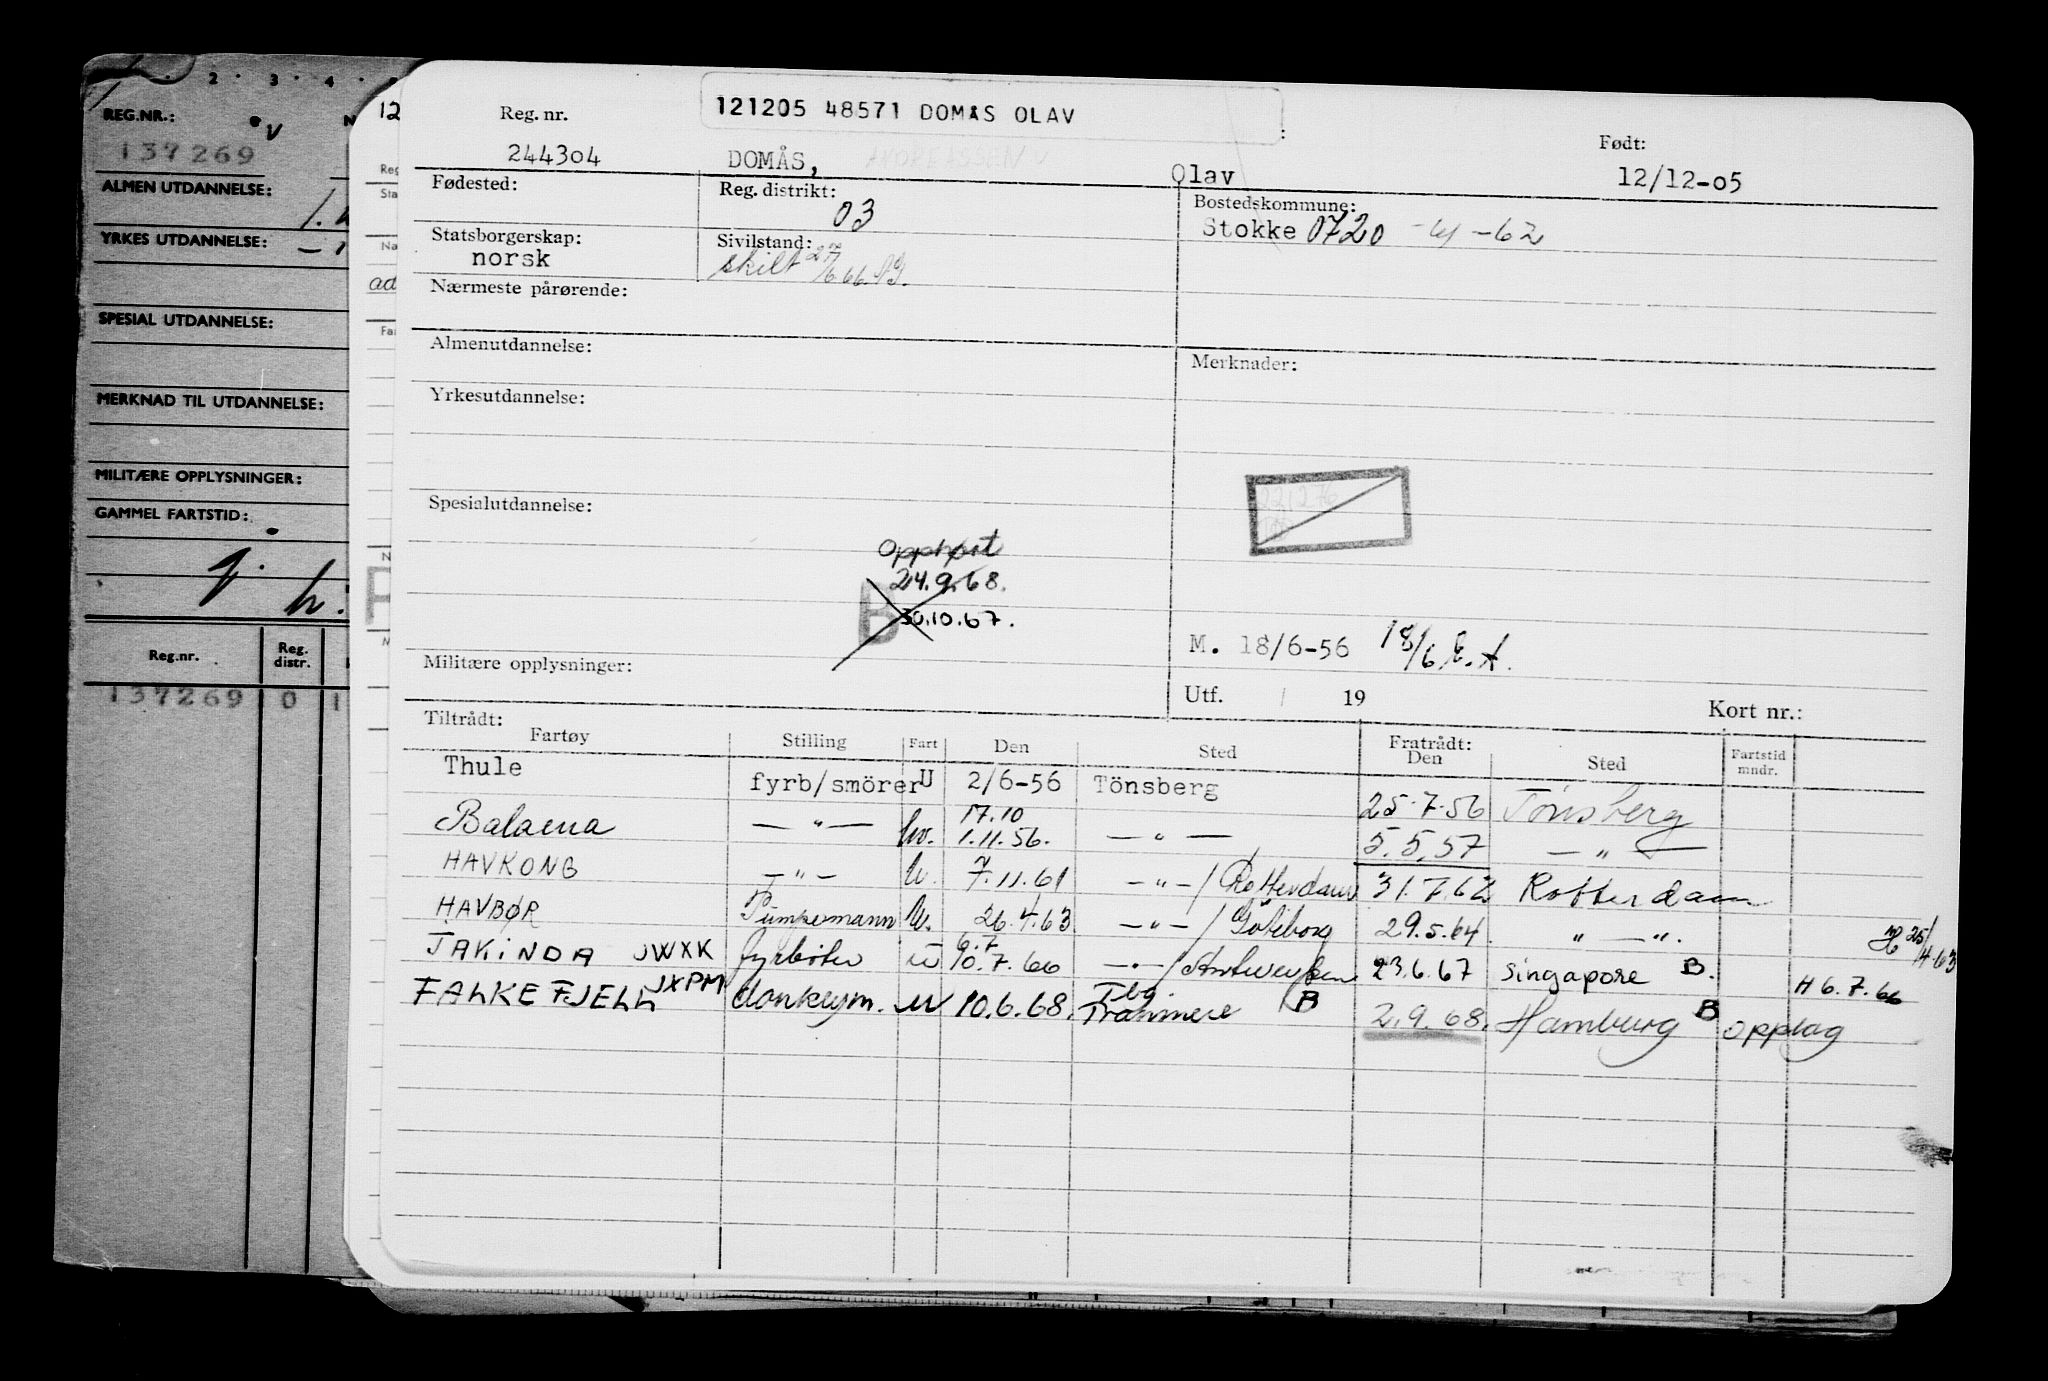 2 · 3 · 4
REG.NR.:
137269
ALMEN UTDANNELSE:
YRKES UTDANNELSE:
SPESIAL UTDANNELSE:
MERKNAD TIL UTDANNELSE:
MILITÆRE OPPLYSNINGER:
GAMMEL FARTSTID:
Reg.nr. Reg. distr.
137269 0 1
12
Reg
Sta
Na
ad
Far
121205 48571 DOMÅS OLAV
Reg. nr. Født:
244304 DOMÅS, Olav 12/12-05
Fødested: Reg. distrikt: 03 Bostedskommune:
Stokke 0720 -61-62
Statsborgerskap: Sivilstand:
norsk skilt 27/6.66.
Nærmeste pårørende:
Almenutdannelse: Merknader:
Yrkesutdannelse:
Spesialutdannelse:
Opphørt
24.9.68.
B 30.10.67.
M. 18/6-56 18/6 E.A.
Militære opplysninger:
Utf. / 19 Kort nr.:
Tiltrådt: Fratrådt:
Fartøy Stilling Fart Den Sted Den Sted Fartstid mndr.
Thule fyrb/smörer U 2/6-56 Tönsberg 25.7.56 Tönsberg
17.10
Balaena — " — hv. 1.11.56. — " — 5.5.57 — " —
HAVKONG — " — U. 7.11.61 — " — / Rotterdam 31.7.62 Rotterdam
HAVBØR Pumpemann U. 26.4.63 — " — / Göteborg 29.5.64. " — ". H 25/4.63
6.7
JAKINDA JWXK fyrbøter U 10.7.66 — " — / Antwerpen 23.6.67 Singapore B. H 6.7.66
FALKEFJELL JXPM donkeym. U 10.6.68. Tbg. Tranmere B 2.9.68. Hamburg B opplag